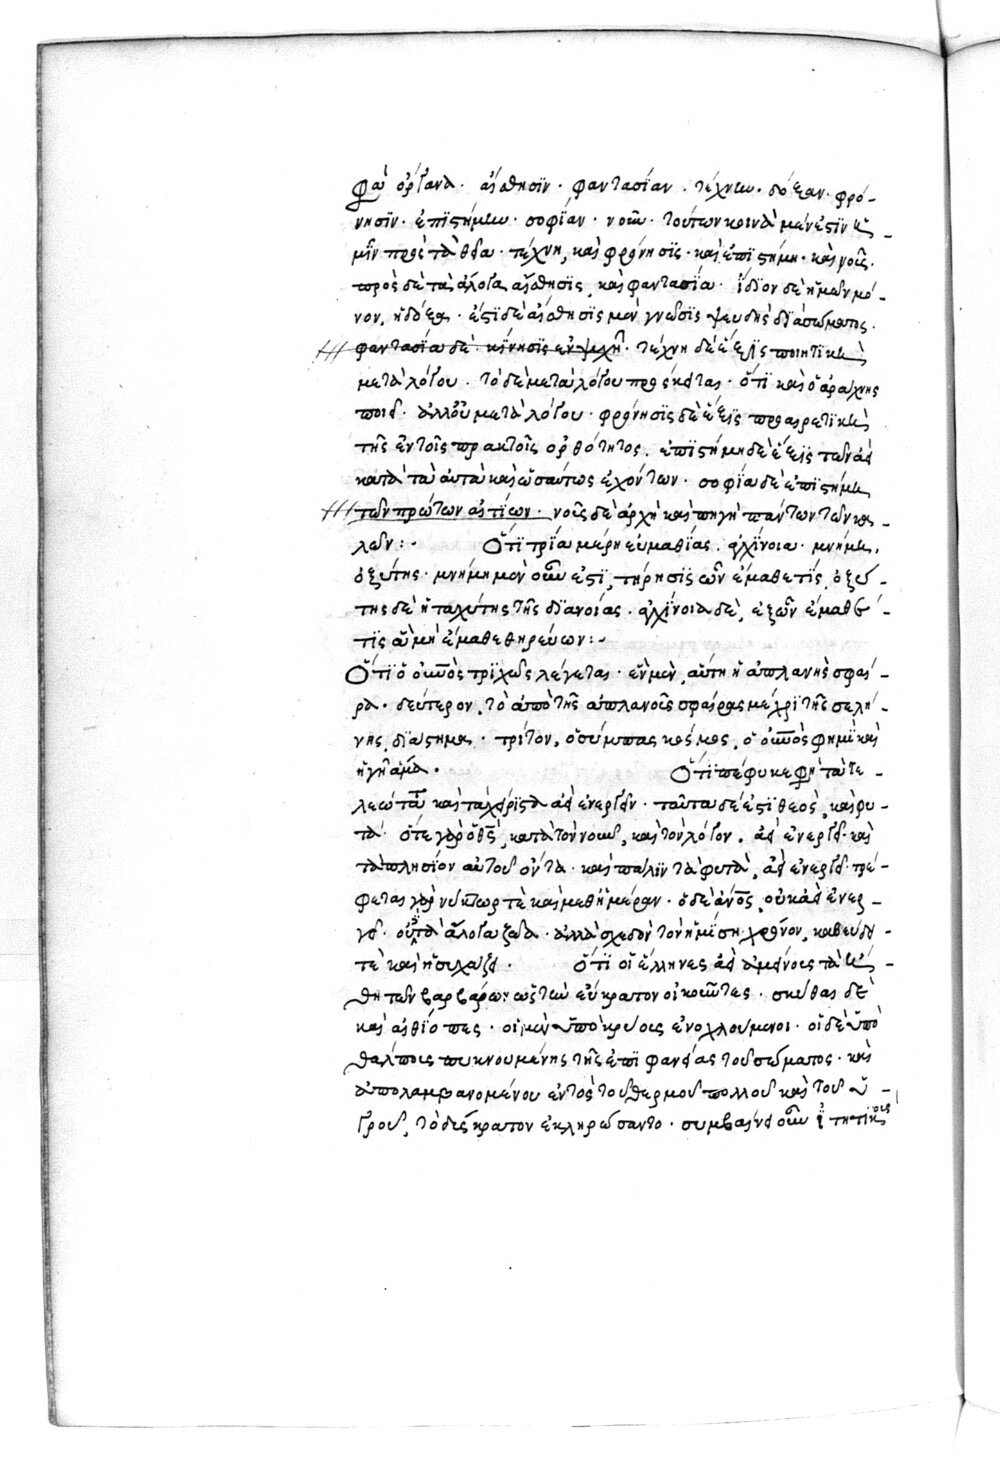 φὰ ὀργανα· αἴσθησϊν· φαντασίαν· τέχνην· δόξαν· φρό-
νησϊν· ἐπιστήμην· σοφίαν· νοῦν· τούτων κοινὰ μέν ἐστϊν
μῖν πρὸς τὰ θεῖα· τέχνη, καὶ φρόνησϊς· καὶ ἐπιστήμη· καὶ νοῦς·
πρὸς δὲ τὰ ἄλογα, αἴσθησϊς, καὶ φαντασία· ἴδϊον δὲ ἡμῶν μό-
νον, ἡ δόξα· ἔστϊ δὲ αἴσθησϊς μὲν γνῶσϊς ψευδὴς δϊὰ σώματος·
φαντασία δὲ κίνησϊς ἐν ψυχῆ· τέχνη δὲ ἕξϊς ποιητϊκὴ
μετὰ λόγου· τὸ δὲ μετὰ λόγου πρόσκειται· ὅτϊ καὶ ὁ ἀράχνης
ποιεῖ· ἀλλ' οὐ μετὰ λόγου· φρόνησϊς δὲ ἕξϊς προαιρετϊκὴ
τῆς ἐν τοῖς πρακτοῖς ὀρθότητος· ἐπϊστήμη δὲ ἕξϊς τῶν ἀεὶ
κατὰ τὰ αὐτὰ καὶ ὡσαύτως ἐχόντων· σοφία δὲ ἐπϊστήμη
τῶν πρώτων αἰτίων· νοῦς δὲ ἀρχὴ καὶ πηγὴ πάντων τῶν κα
λῶν:· Ὅτϊ τρία μέρη εὐμαθίας· ἀγχίνοια· μνήμη,
ὀξύτης· μνήμη μὲν οὖν ἐστϊ, τήρησϊς ὧν ἔμαθέ τϊς, ὀξύ-
της δὲ ἡ ταχύτης τῆς δϊανοίας· ἀγχίνοια δὲ, ἐξ ὧν ἔμαθέ
τϊς ἃ μὴ ἔμαθε θηρεύων:-
Ὅτϊ ὁ οὐνὸς τρϊχῶς λέγεται· ἓν μὲν, αὕτη ἡ ἀπλανὴς σφαῖ-
ρα· δεύτερον, τὸ ἀπὸ τῆς ἀπλανοῦς σφαίρας μέχρϊ τῆς σελή-
νης δϊάστημα· τρίτον, ὁ σύμπας κόσμος, ὁ οὐνὸς φημὶ καὶ
ἡ γῆ ἅμα. Ὅτϊ πέφυκε φη τά τε
λεώτατα καὶ τὰ χείρϊστα ἀεὶ ἐνεργεῖν· ταῦτα δέ ἐστϊ θεὸς, καὶ φυ-
τά· ὅ τε γὰρ ὁ θς, κατὰ τὸν νοῦν, καὶ τὸν λόγον, ἀεὶ ἐνεργεῖ· καὶ
τὰ πλησίον αὐτοῦ ὄντα· καὶ πάλϊν τὰ φυτὰ, ἀεὶ ἐνεργεῖ· τρέ-
φεται γὰρ νύκτωρ τὲ καὶ μεθ' ἡμέραν· ὁ δὲ ἄνος, οὐκ ἀεὶ ἐνερ-
γεῖ· οὔτε τὰ ἄλογα ζῶα· ἀλλὰ σχεδὸν τὸν ἥμϊση χρόνον, καθεύδει
τὲ καὶ ἡσυχάζει· Ὅτϊ οἱ ἕλληνες ἀεὶ ἀμείνους
θη τῶν βαρβάρων· ὡς τὴν εὔκρατον οἰκοῦντες· σκύθαι δὲ
καὶ αἰθίοπες· οἱ μὲν ὑπὸ κρύους ἐνοχλούμενοι· οἱ δὲ ὑπὸ
θάλπους πυκνουμένης τῆς ἐπϊφανείας τοῦ σώματος· καὶ
ἀπολαμβανομένου ἐντὸς τοῦ θερμοῦ πολλοῦ καὶ τοῦ ὑ-
γροῦ, τὸ δύσκρατον ἐκληρώσαντο· συμβαίνει οὖν ἰητητϊκοὺς